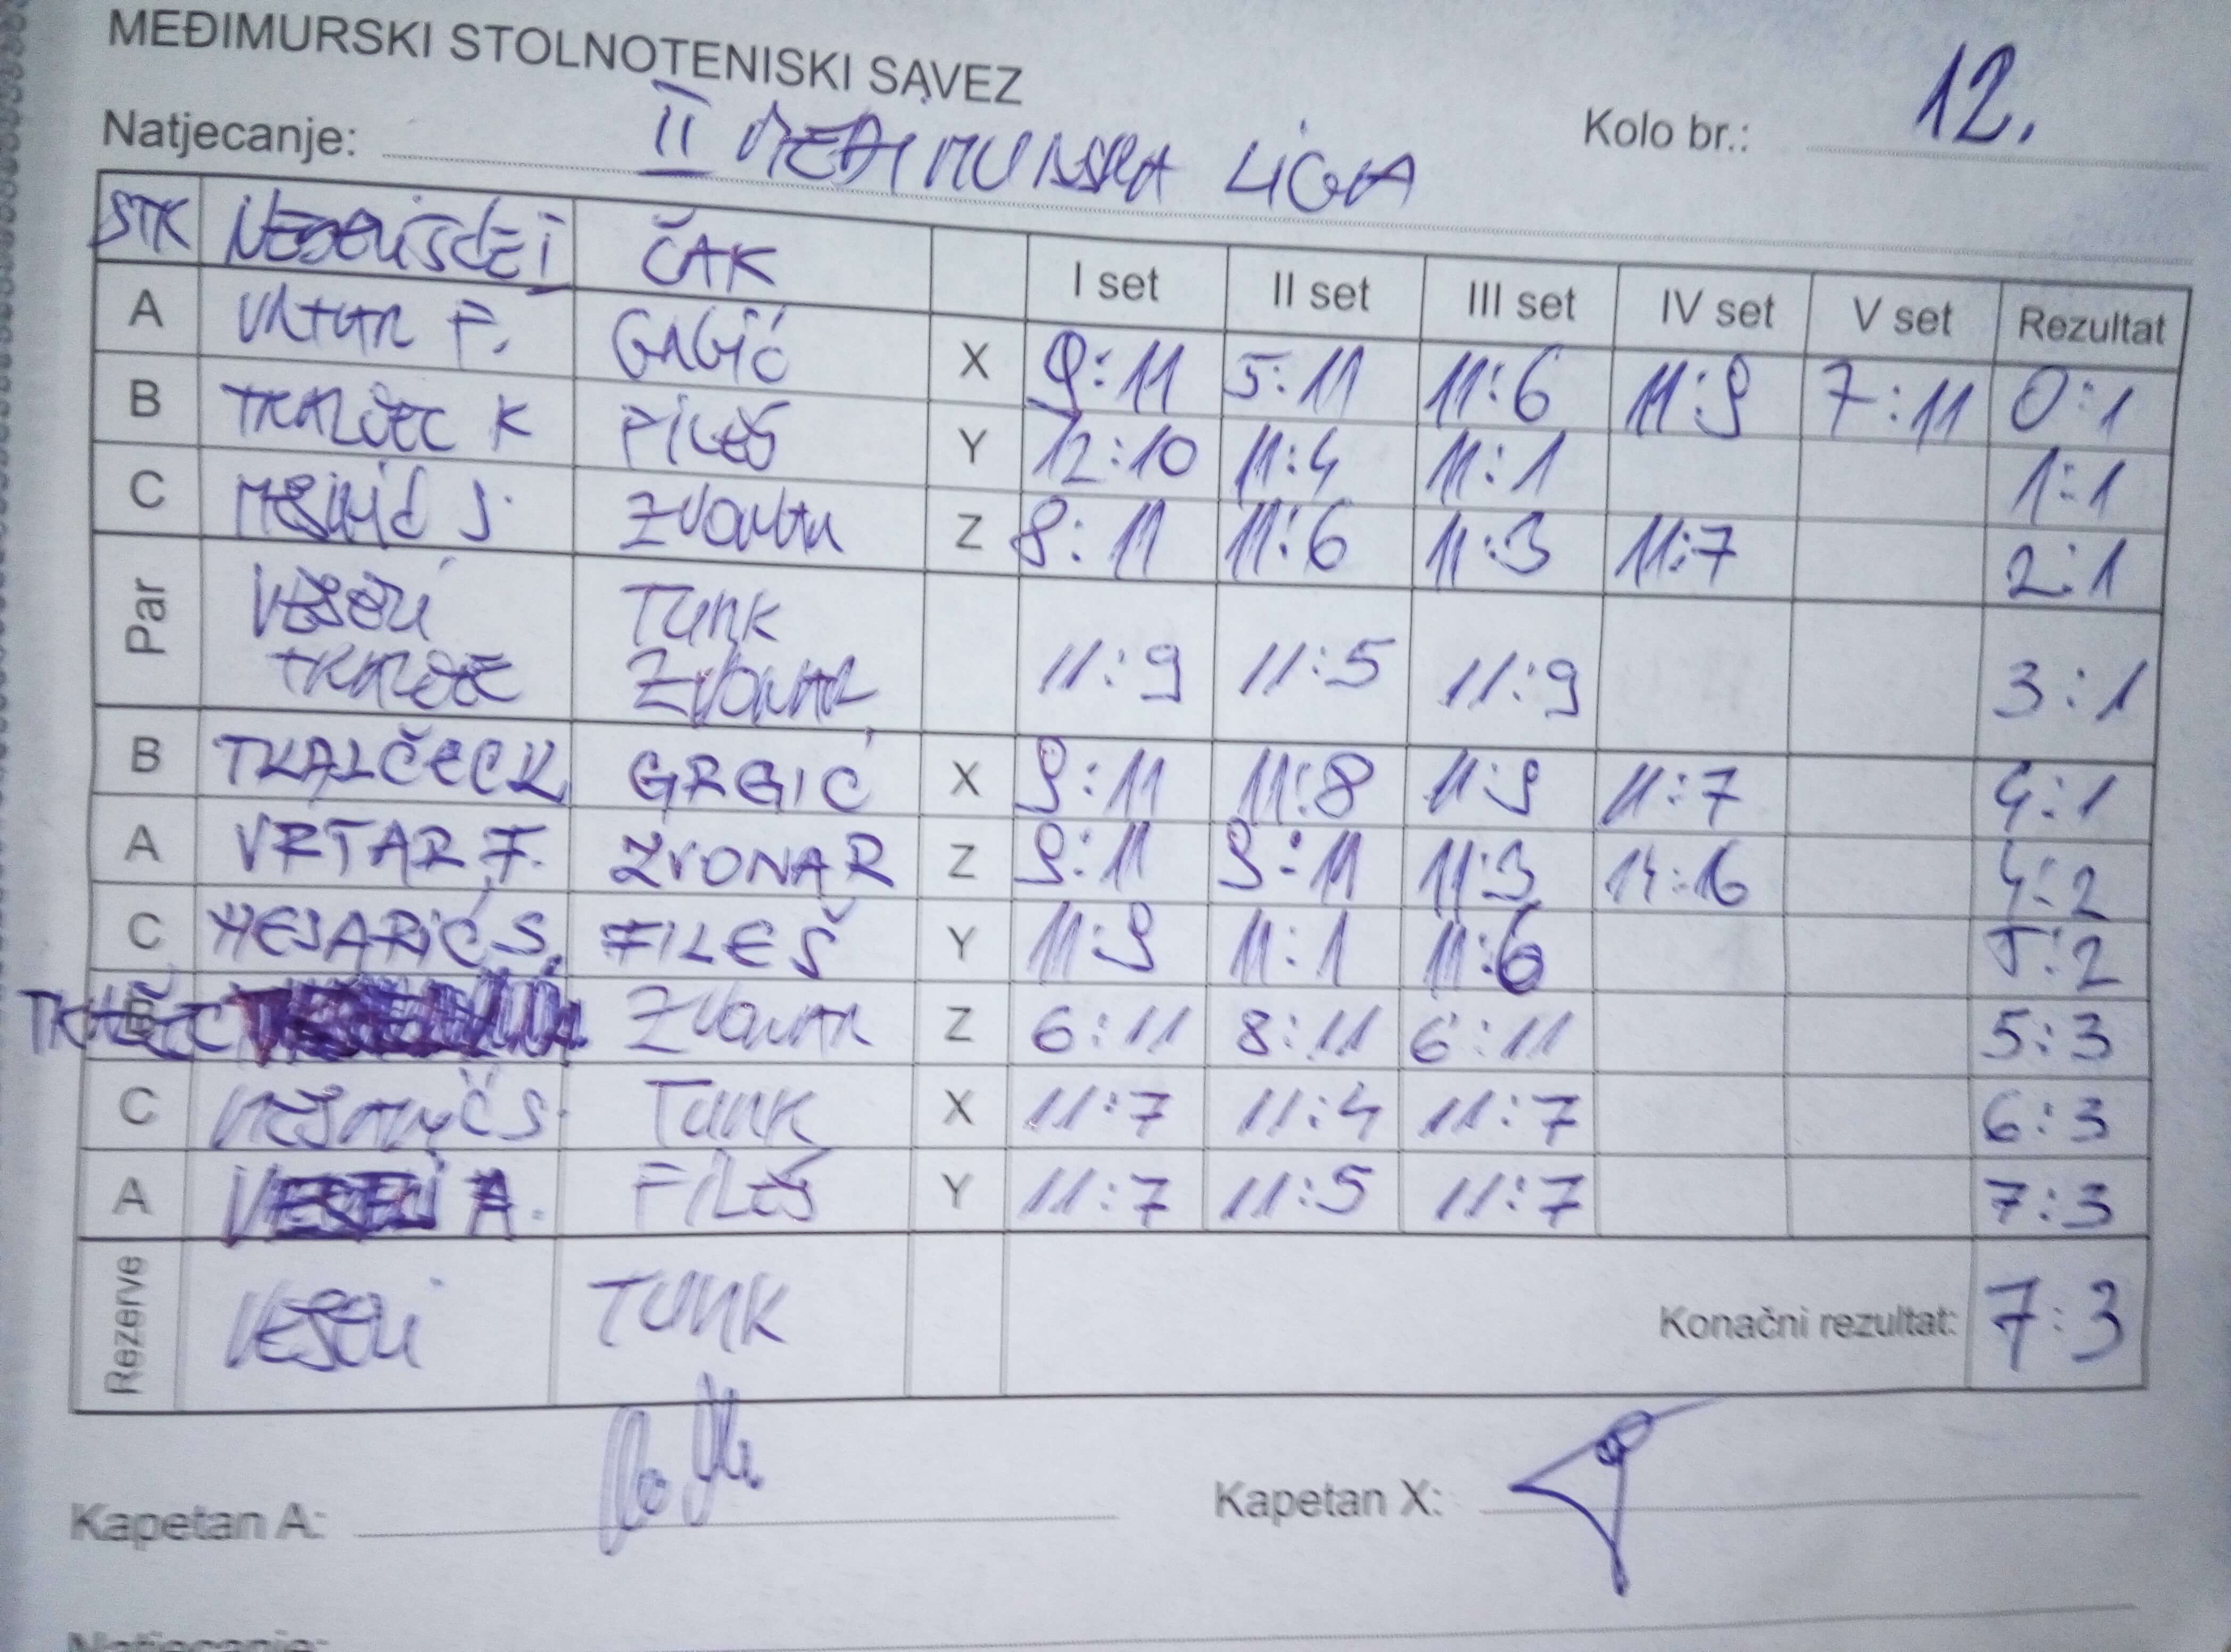 MEĐIMURSKI STOLNOTENISKI SAVEZ
Natjecanje: II MEĐIMURSKA LIGA Kolo br.: 12.
STK ČAK I set II set III set IV set V set Rezultat
A VRTAR F. GRGIĆ X 9:11 5:11 11:6 11:9 7:11 0:1
B TKALČEC K FILEŠ Y 12:10 11:4 11:1 1:1
C MESARIĆ S. ZVONAR Z 8:11 11:6 11:3 11:7 2:1
Par VESELI TURK
TKALČEC ZVONAR 11:9 11:5 11:9 3:1
B TKALČEC K GRGIĆ X 9:11 11:8 11:9 11:7 4:1
A VRTAR F. ZVONAR Z 9:11 9:11 11:3 14:16 4:2
C MESARIĆ S. FILEŠ Y 11:9 11:1 11:6 5:2
B TKALČEC ZVONAR Z 6:11 8:11 6:11 5:3
C MESARIĆ S. TURK X 11:7 11:4 11:7 6:3
A VESELI A. FILEŠ Y 11:7 11:5 11:7 7:3
Rezerve VESELI TURK Konačni rezultat: 7:3
Kapetan A: Kapetan X:
Natjecanje: